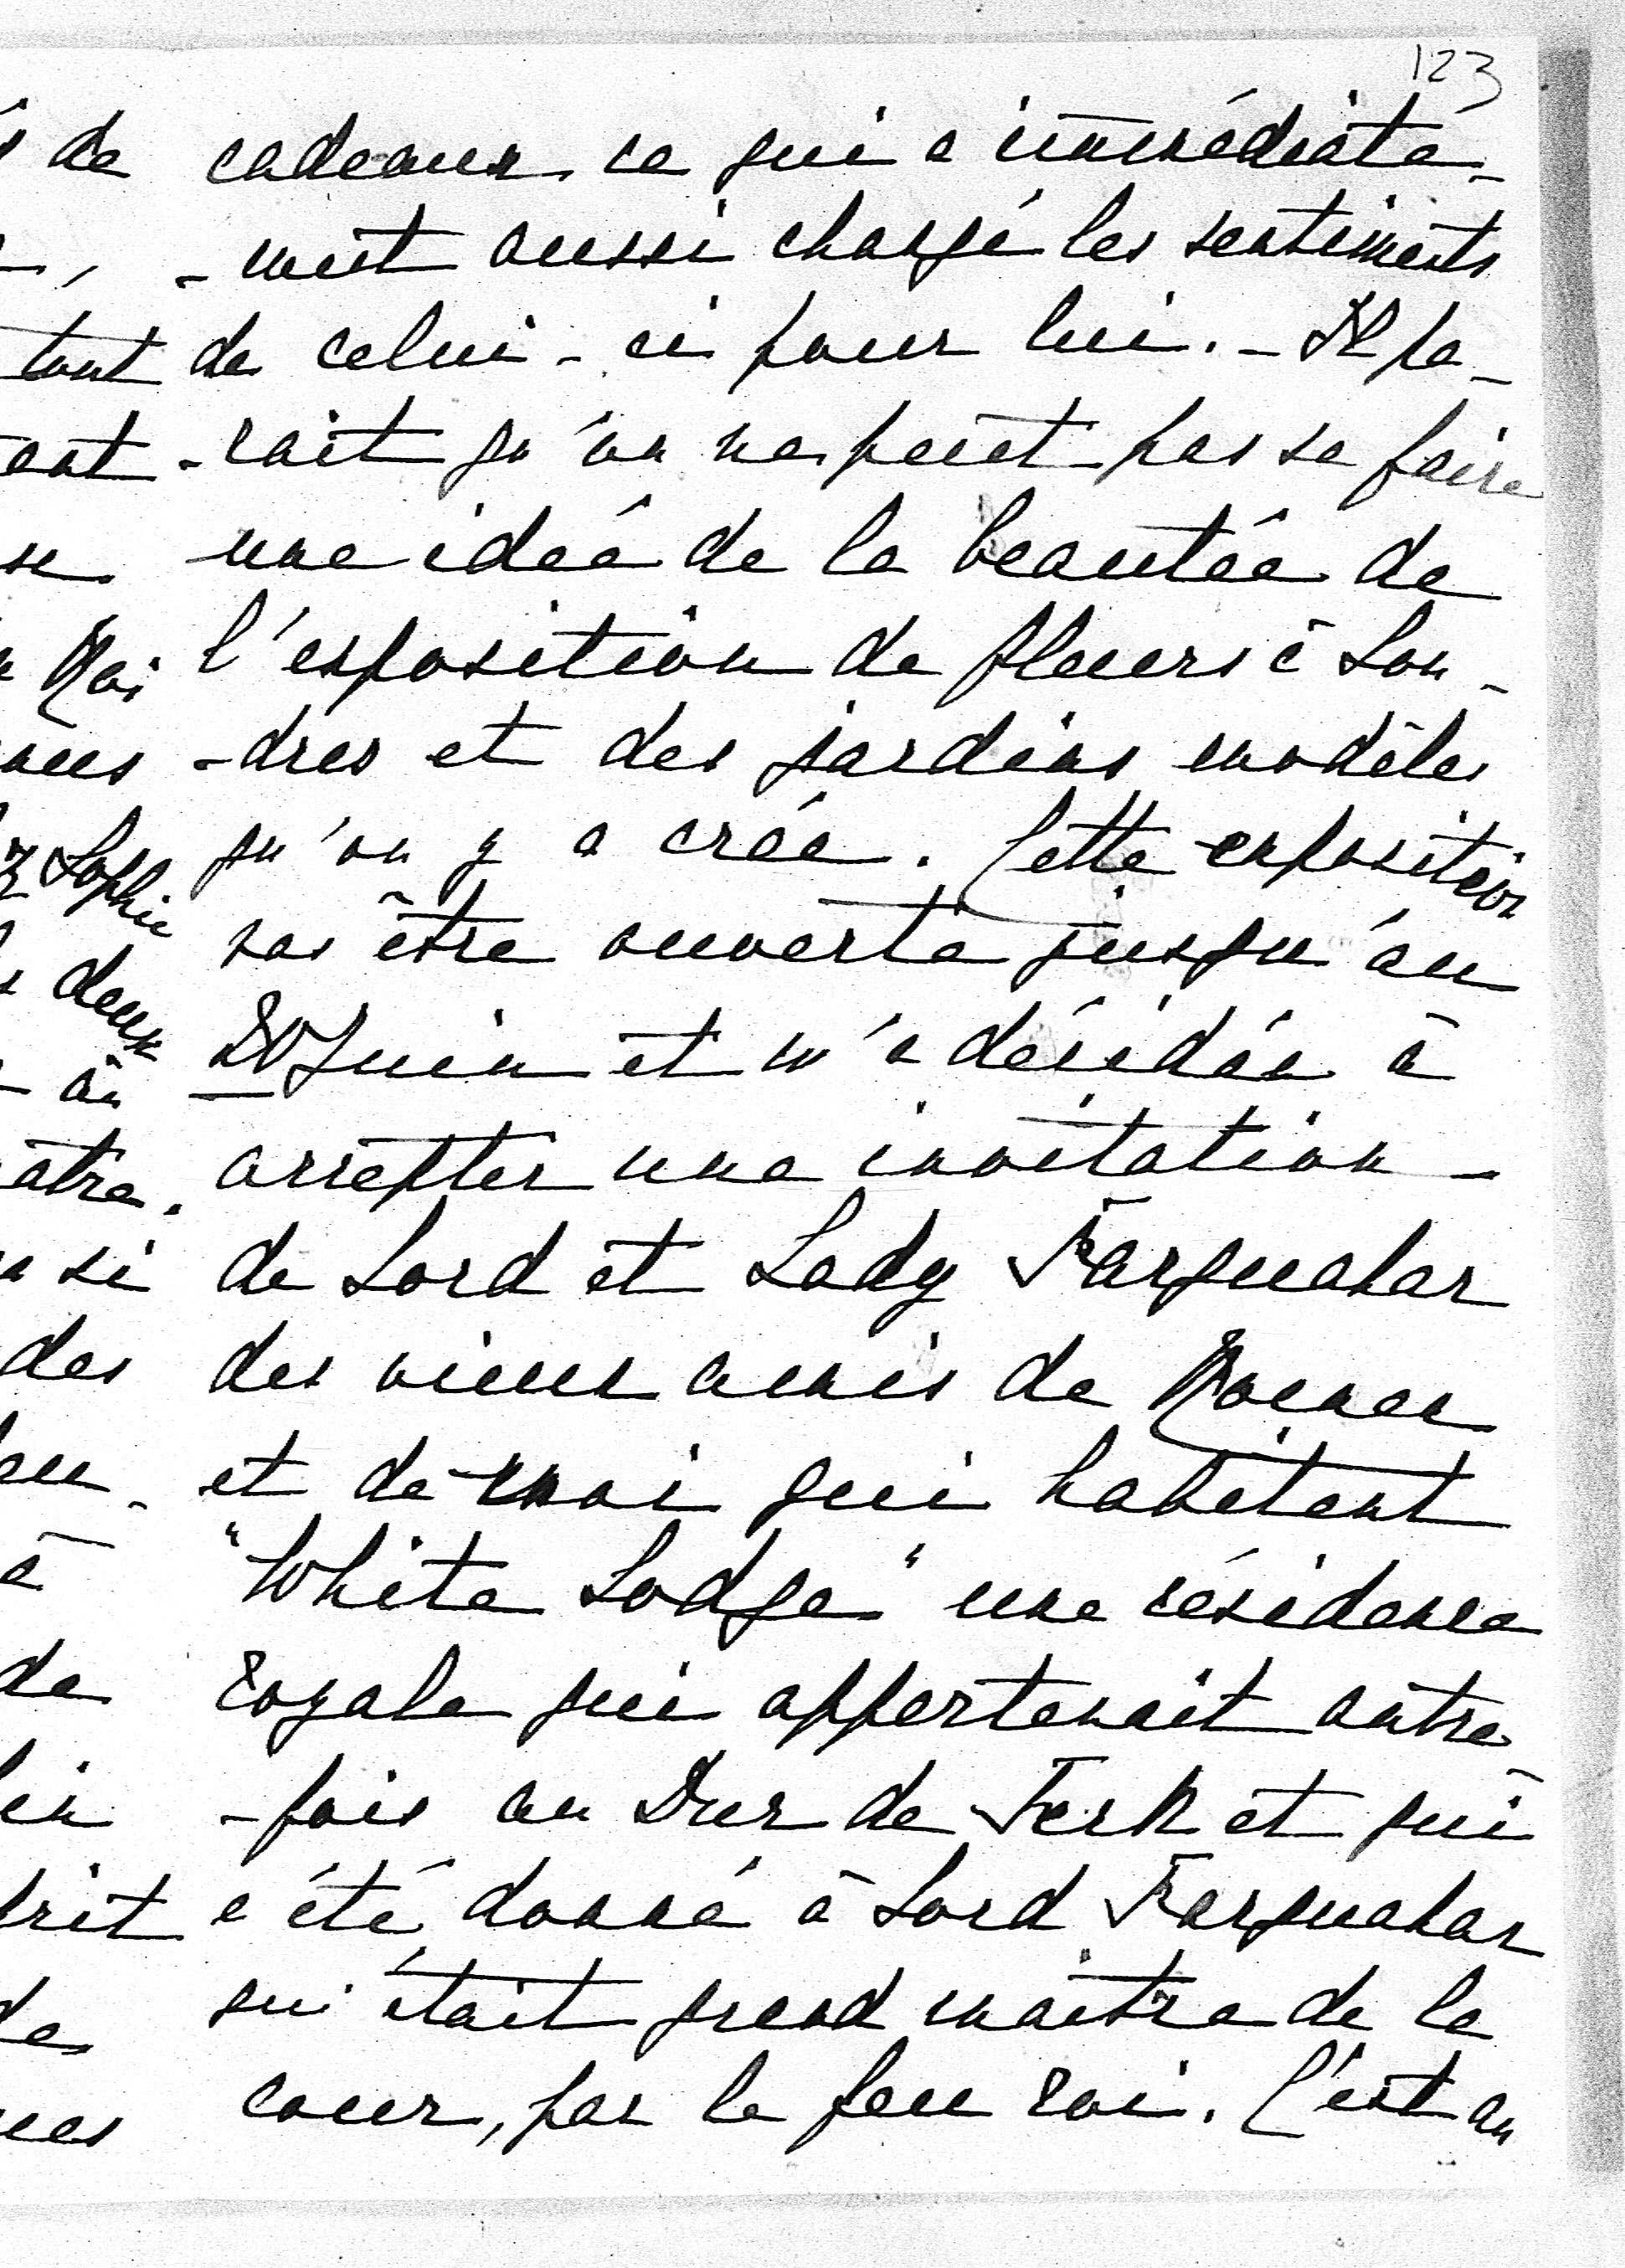 123
cadeaux, ce qui a immédiate-
-ment aussi changé les sentiments
de celui-ci pour lui. - Il pa-
-rait qu'on ne peut pas se faire
une idée de la beautée de
l'exposition de fleurs à Lon-
-dres et des jardins modèles
qu'on y a crée. Cette exposition
vas être ouverte jusqu'au
Juin et m'a décidée à
accepter une invitation -
de Lord et Lady Farquahar
des vieux amis de
et de moi qui habitent
"White Lodge" une résidence
royale qui appartenait autre
-fois au Duc de Teck et qui
a été donné à Lord Farquahar
qui était grand maître de la
cour, par le feu roi. C'est au
de
tout
Sophie
deux
si
des
à
de
de